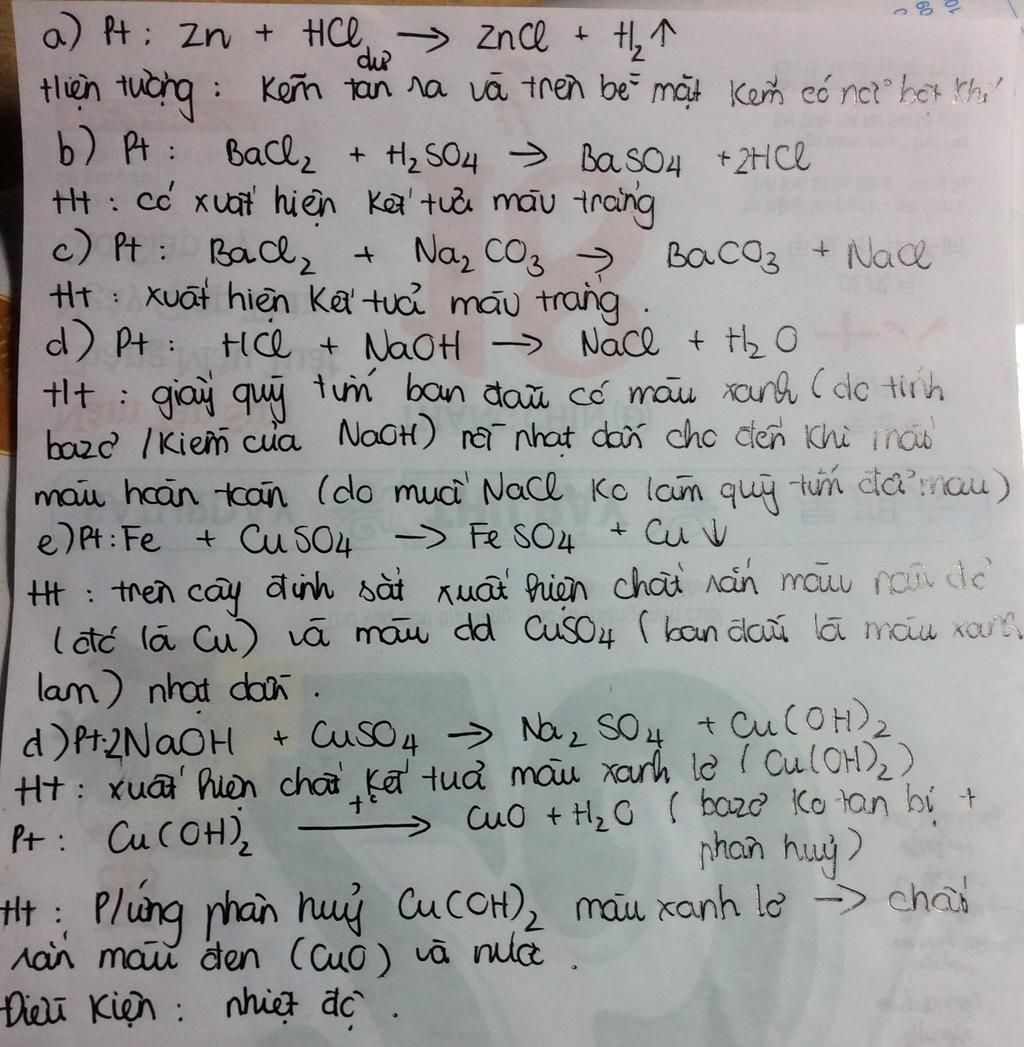 a) Pt : Zn + HCl dư → ZnCl + H₂↑
Hiện tượng : Kẽm tan ra và trên bề mặt kẽm có nổi bọt khí
b) Pt : BaCl₂ + H₂SO₄ → BaSO₄ +2HCl
Ht : có xuất hiện kết tủa màu trắng
c) Pt : BaCl₂ + Na₂CO₃ → BaCO₃ + NaCl
Ht : xuất hiện kết tủa màu trắng .
d) Pt : HCl + NaOH → NaCl + H₂O
Ht : giấy quỳ tím ban đầu có màu xanh (do tính
bazơ /kiềm của NaOH) rồi nhạt dần cho đến khi mất
màu hoàn toàn (do muối NaCl ko làm quỳ tím đổi màu)
e) Pt : Fe + CuSO₄ → FeSO₄ + Cu↓
Ht : trên cây đinh sắt xuất hiện chất rắn màu nâu đỏ
(đó là Cu) và màu dd CuSO₄ (ban đầu là màu xanh
lam) nhạt dần .
d) Pt: 2NaOH + CuSO₄ → Na₂SO₄ + Cu(OH)₂
Ht : xuất hiện chất kết tủa màu xanh lơ (Cu(OH)₂)
Pt : Cu(OH)₂ t° → CuO + H₂O (bazơ ko tan bị +
phân huỷ)
Ht : P/ứng phân huỷ Cu(OH)₂ màu xanh lơ → chất
rắn màu đen (CuO) và nước .
Điều kiện : nhiệt độ .